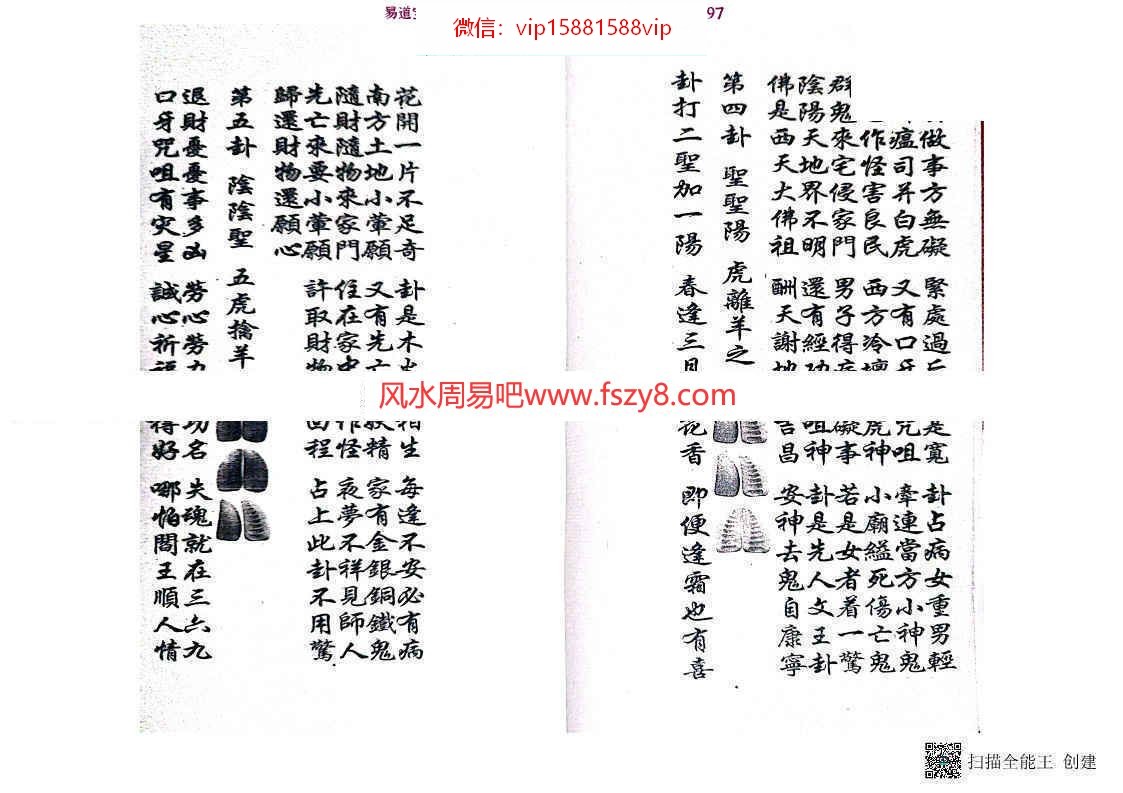 易道
97
微信：vip15881588vip
做事方無礙 緊處過 是寃 卦占病女重男輕
瘟司并白虎 又有口牙 咒咀 牽連當方小神鬼
作怪害良民 西方冷壇 虎神 小廟縊死傷亡鬼
群鬼來宅侵家門 男子得 礙事 若是女者着一驚
陰陽天地界不明 還有經功 咀神 卦是先人文王卦
佛是西天大佛祖 酬天謝地 吉昌 安神去鬼自康寧
第四卦 聖聖陽 虎離羊之
卦打二聖加一陽 春逢三月 花香 即便逢霜也有喜
花開一片不足奇 卦是木 相生 每逢不安必有病
南方土地小葷願 又有先亡 妖精 家有金銀銅鐵鬼
隨財隨物來家門 住在家中 作怪 夜夢不祥見師人
先亡來要小葷願 許取財物 回程 占上此卦不用驚
歸還財物還願心
第五卦 陰陰聖 五虎擒羊
退財憂憂事多凶 勞心勞力 功名 失魂就在三六九
口牙咒咀有灾星 誠心祈福 得好 哪怕閻王順人情
风水周易吧www.fszy8.com
扫描全能王 创建